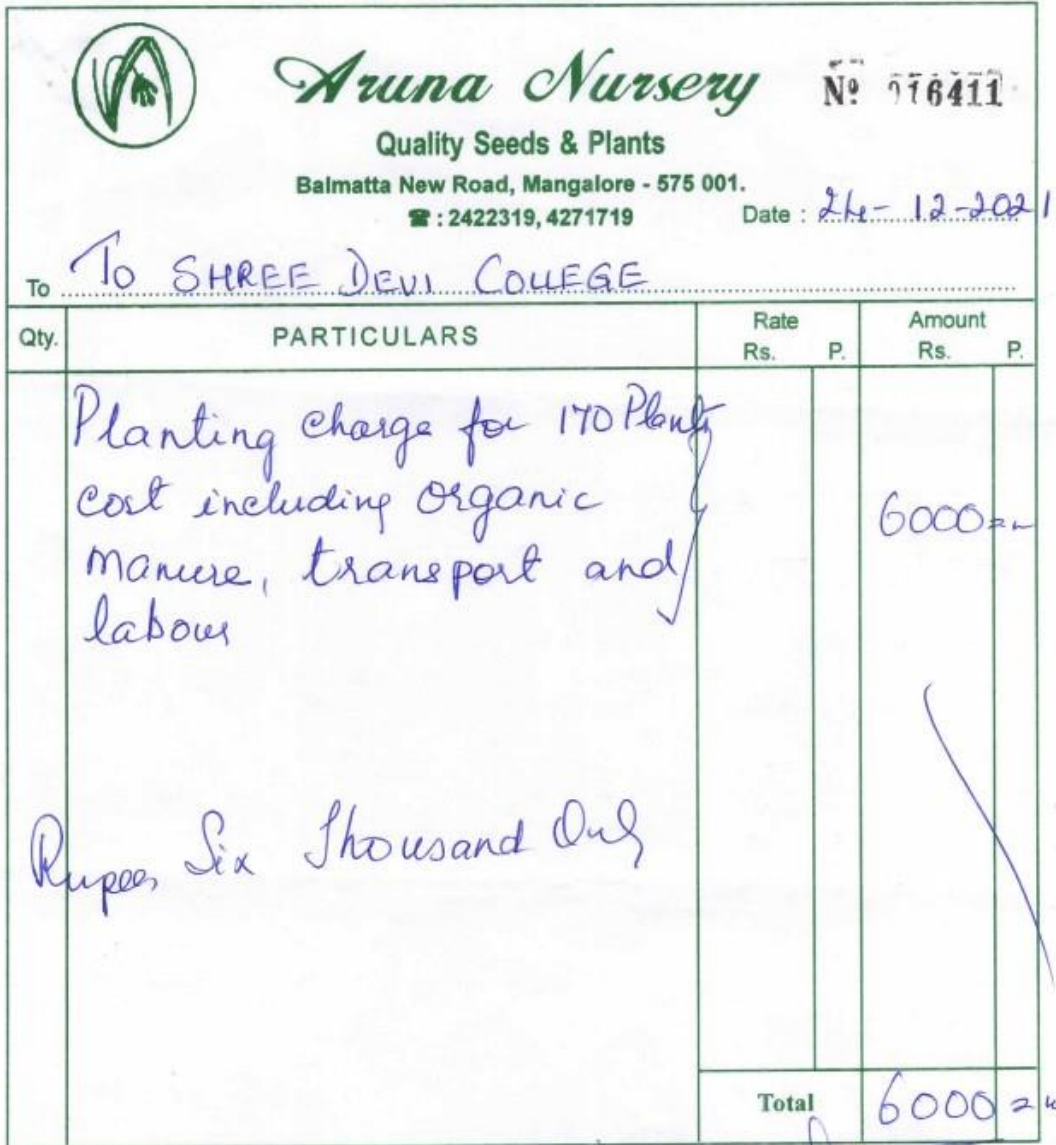 Aruna Nursery
Nº 016411
Quality Seeds & Plants
Balmatta New Road, Mangalore - 575 001.
☎ : 2422319, 4271719
Date : 24-12-2021
To To SHREE DEVI COLLEGE
Qty. PARTICULARS Rate Rs. P. Amount Rs. P.
Planting charge for 170 Plants
cost including organic
manure, transport and
labour
6000=00
Rupees Six Thousand Only
Total 6000=00